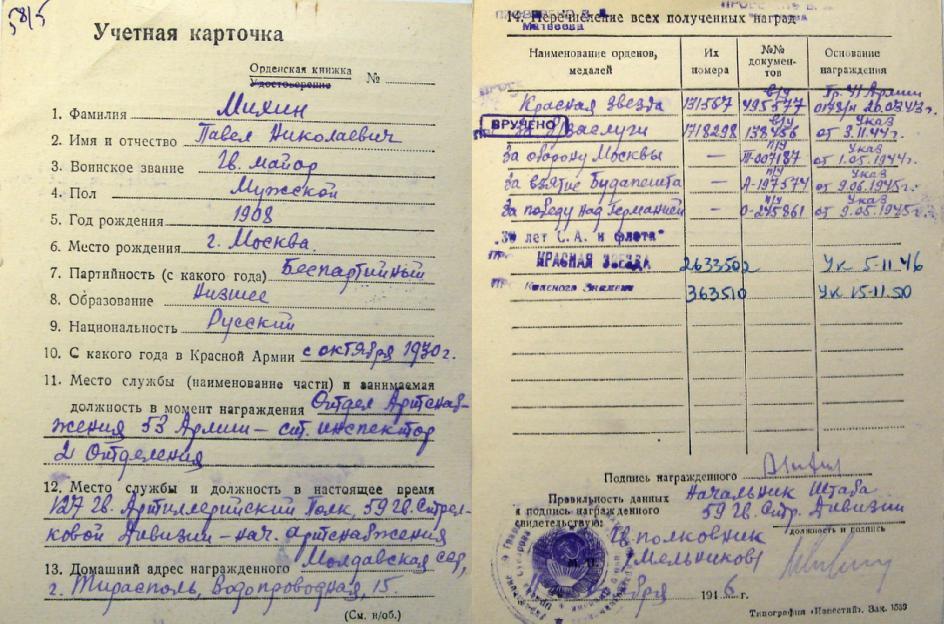 58/5
Учетная карточка
Орденская книжка
Удостоверение №
1. Фамилия Михин
2. Имя и отчество Павел Николаевич
3. Воинское звание Гв. майор
4. Пол Мужской
5. Год рождения 1908
6. Место рождения г. Москва.
7. Партийность (с какого года) Беспартийный
8. Образование Низшее
9. Национальность Русский
10. С какого года в Красной Армии с октября 1930 г.
11. Место службы (наименование части) и занимаемая
должность в момент награждения Отдел Артснаб-
жения 53 Армии – ст. инспектор
2 Отделения
12. Место службы и должность в настоящее время
127 Гв. Артиллерийский Полк, 59 Гв. Стрел-
ковой Дивизии – нач. артснабжения
13. Домашний адрес награжденного Молдавская сср,
г. Тирасполь, Водопроводная, 15.
(См. н/об.)
14. Перечисление всех полученных наград
Матвеева
Наименование орденов, медалей | Их номера | №№ документов | Основание награждения
Красная звезда 131567 в/у 495577 Пр. 41 Армии 20.03.43г.
ВРУЧЕНО
За б/заслуги 1718298 в/у 138456 Указ от 3.11.44 г.
За оборону Москвы — п/у П-007187 Указ от 1.05.1944г.
За взятие Будапешта — п/у А-197574 Указ от 9.06.1945г.
За победу над Германией — п/у О-245861 Указ от 9.05.1945г.
„30 лет С.А. и флота"
КРАСНАЯ ЗВЕЗДА 2633502 Ук 5-11.46
Красного Знамени 363510 Ук 15-11.50
Подпись награжденного
Правильность данных
и подпись награжденного
свидетельствую:
Начальник Штаба
59 Гв. Стр. Дивизии
должность и подпись
Гв. полковник
Мельников
М. П.
1946 г.
Типография «Известий». Зак. 1539